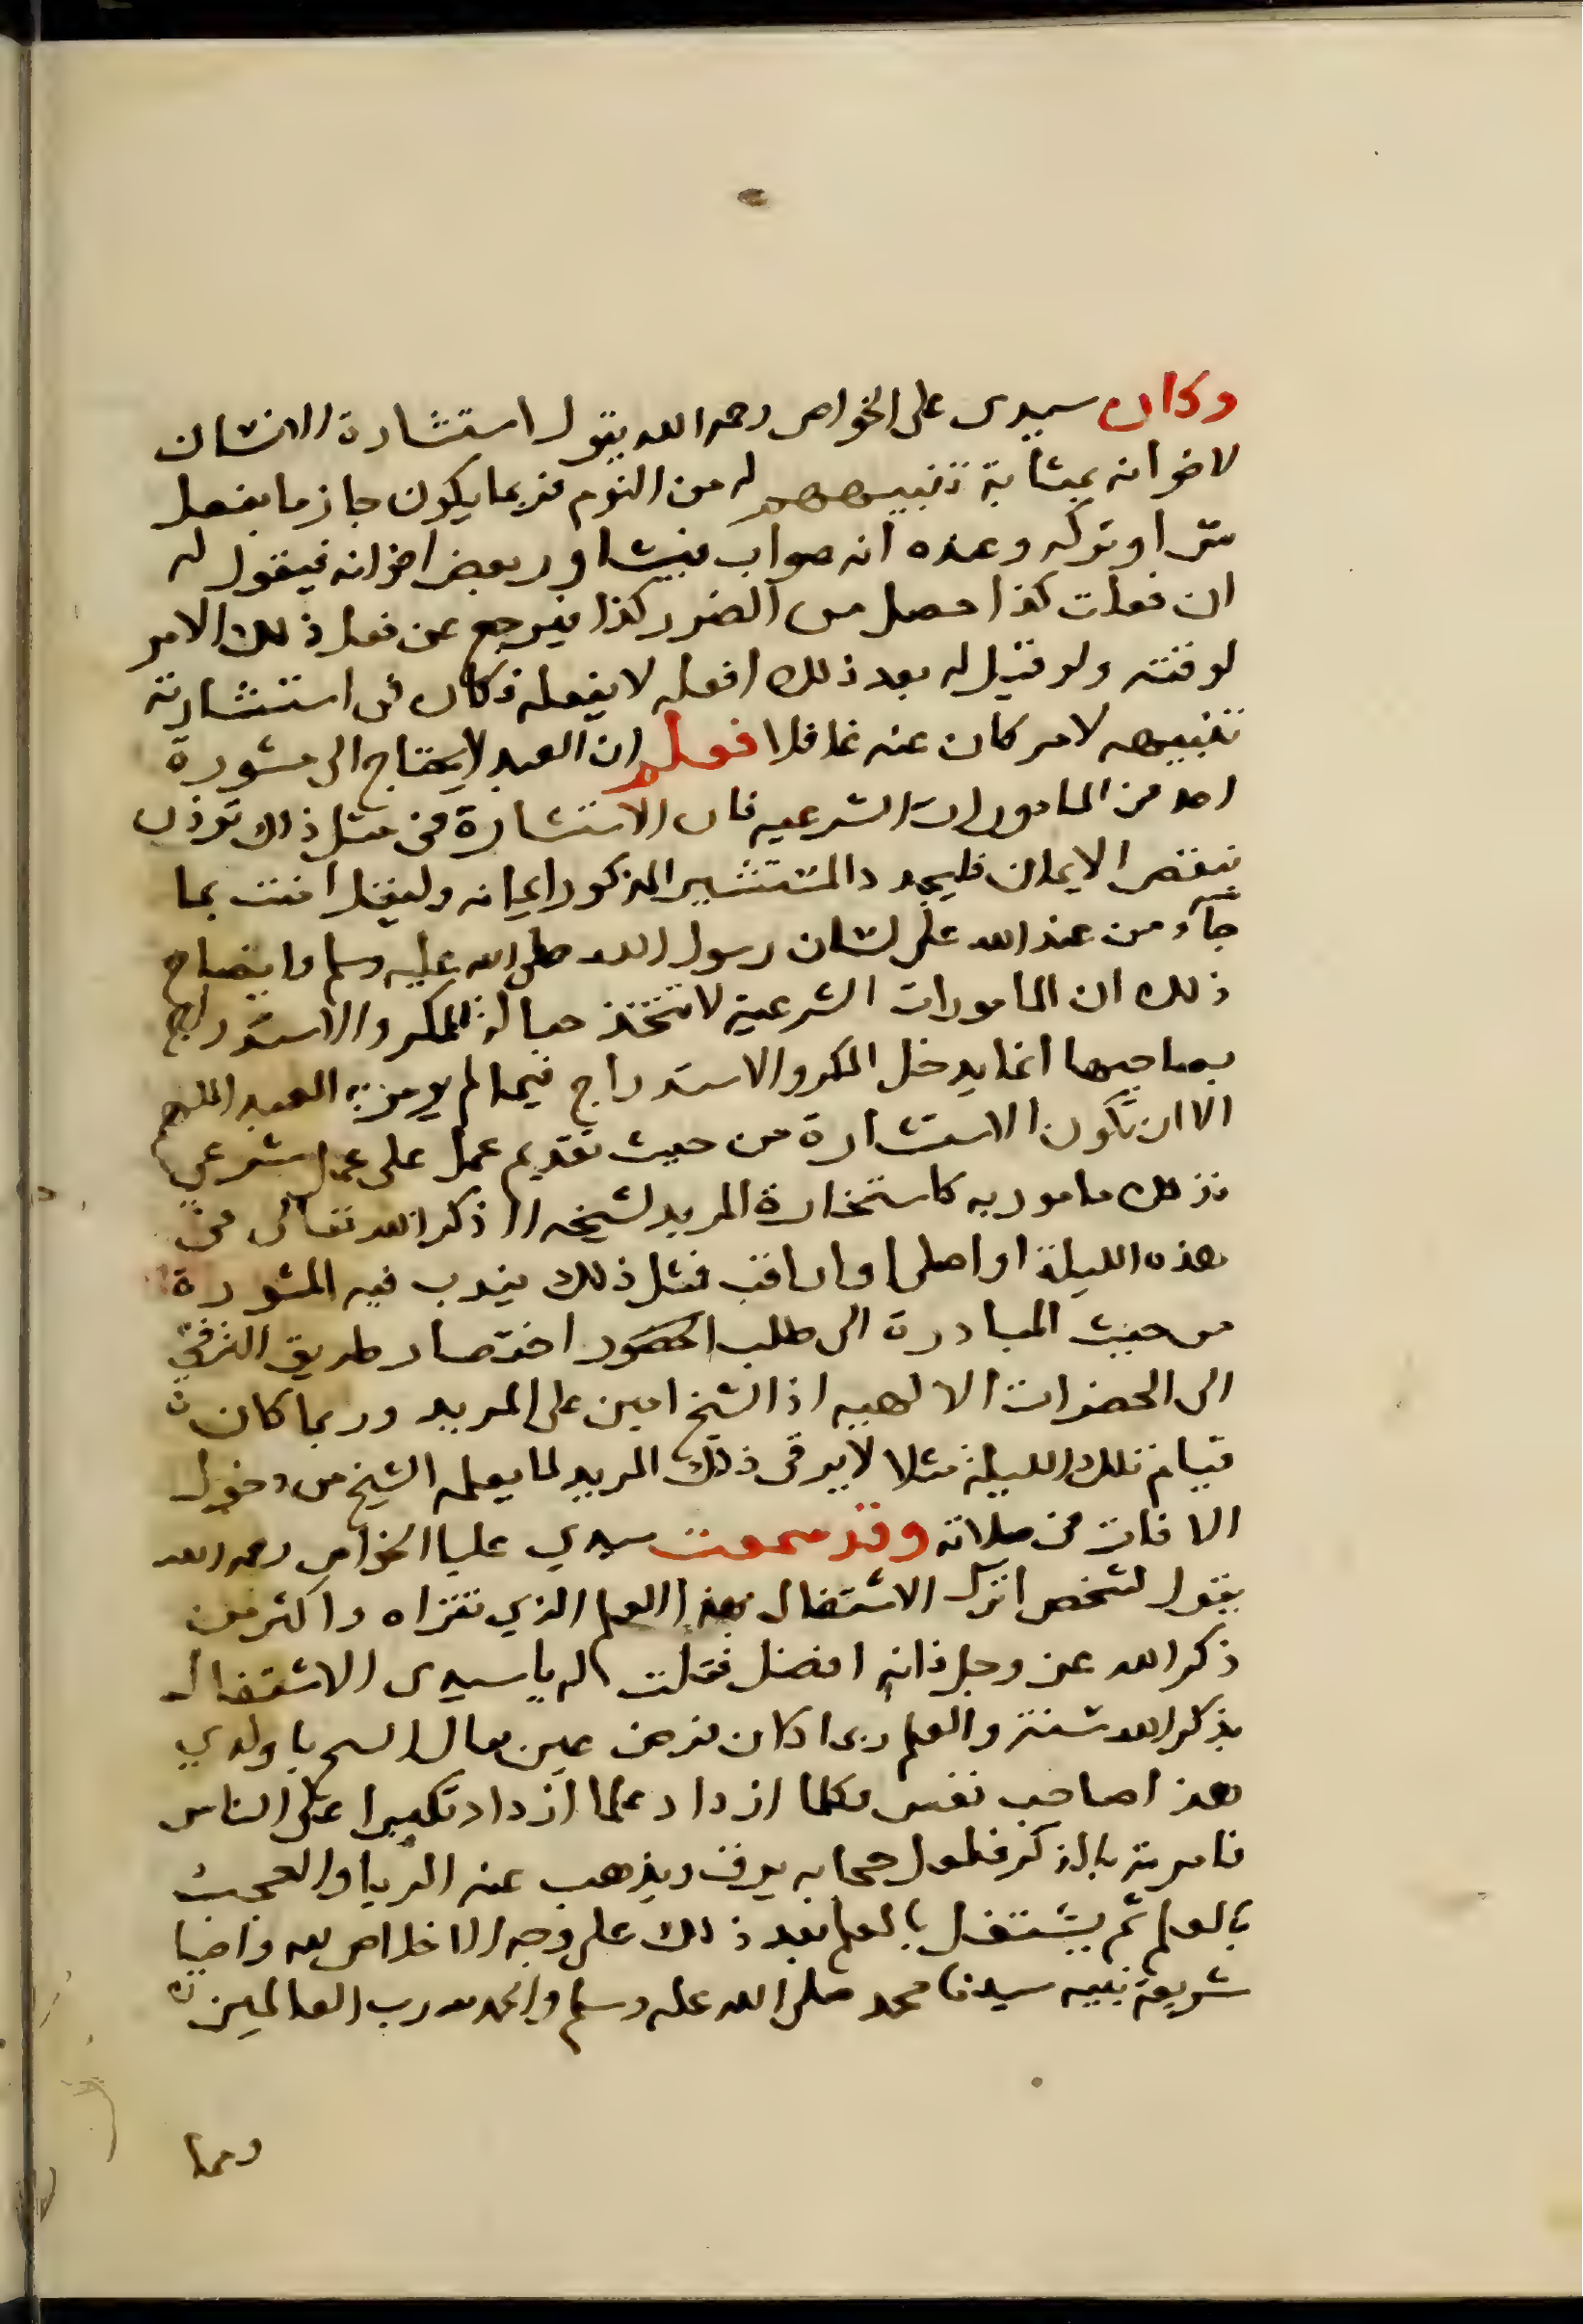 وكان سيدى على الخواص رحمه الله يقول استشارة الانسان
لاخوانه بمثابة تنبيههم له من النوم فربما يكون جازما بفعل
شئ او تركه وعنده انه صواب فيشاور بعض اخوانه فيقول له
ان فعلت كذا حصل من الضرر كذا فيرجع عن فعل ذلك الامر
لوقته ولو قيل له بعد ذلك افعله لا يفعله فكان فى استشارته
تنبيهه لامر كان عنه غافلا فعلم ان العبد لا يحتاج الى مشورة
احد من المامورات الشرعيه فان الاستشارة فى مثل ذلك توذن
بنقص الايمان فليجدد المستشير المذكور ايمانه وليقل امنت بما
جآء من عند الله على لسان رسول الله صلى الله عليه وسلم وايضاح
ذلك ان المامورات الشرعية لا تتخذ حبالة للمكر والاستدراج
بصاحبها انما يدخل المكر والاستدراج فيما لم يومر به العبد اللهم
الا ان تكون الاستشارة من حيث تقديم عمل على عمل شرعي
فذلك مامور به كاستخارة المريد لشيخه ااذكر الله تعالى فى
هذه الليلة او اصلى او اراقب فمثل ذلك يندب فيه المشورة
من حيث المبادرة الى طلب الحضور اختصار طريق الترقي
الى الحضرات الالهيه اذ الشيخ امين على المريد وربما كان
قيام تلك الليلة مثلا لا يرقى ذلك المريد لما يعلمه الشيخ من دخول
الافات فى صلاته وقد سمعت سيدي عليا الخواص رحمه الله
يقول لشخص اترك الاشتغال بهذا العلم الذي تقراه واكثر من
ذكر الله عز وجل فانه افضل فقلت له يا سيدى الاشتغال
بذكر الله سنة والعلم ربما كان فرض عين فقال الشيخ يا ولدي
هذا صاحب نفس فكلما ازداد علما ازداد تكبرا على الناس
فامرته بالذكر فلعل حجابه يرق ويذهب عنه الريا والعجب
بالعلم ثم يشتغل بالعلم بعد ذلك على وجه الاخلاص لله واحيا
شريعة نبيه سيدنا محمد صلى الله عليه وسلم والحمد لله رب العالمين
ومما